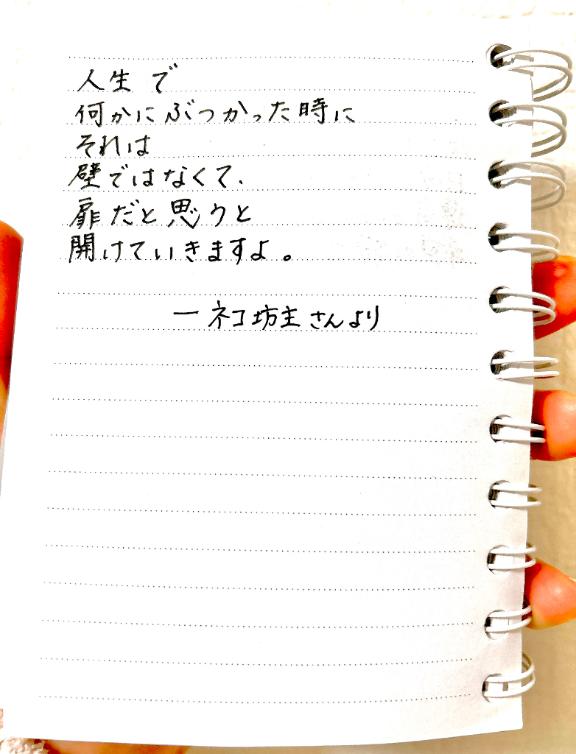 人生で
何かにぶつかった時に
それは
壁ではなくて、
扉だと思うと
開けていきますよ。
ー ネコ坊主さんより